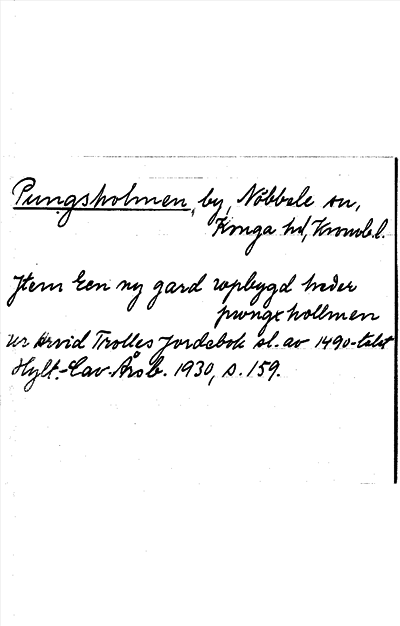 Pungsholmen, by, Nöbbele sn,
Konga hd, Kronob.l.
Jtem Een ny gard vpbygd heder
pwngxhollmen
ur Arvid Trolles Jordebok sl. av 1490-talet
Hylt.-Cav. Årsb. 1930, s. 159.